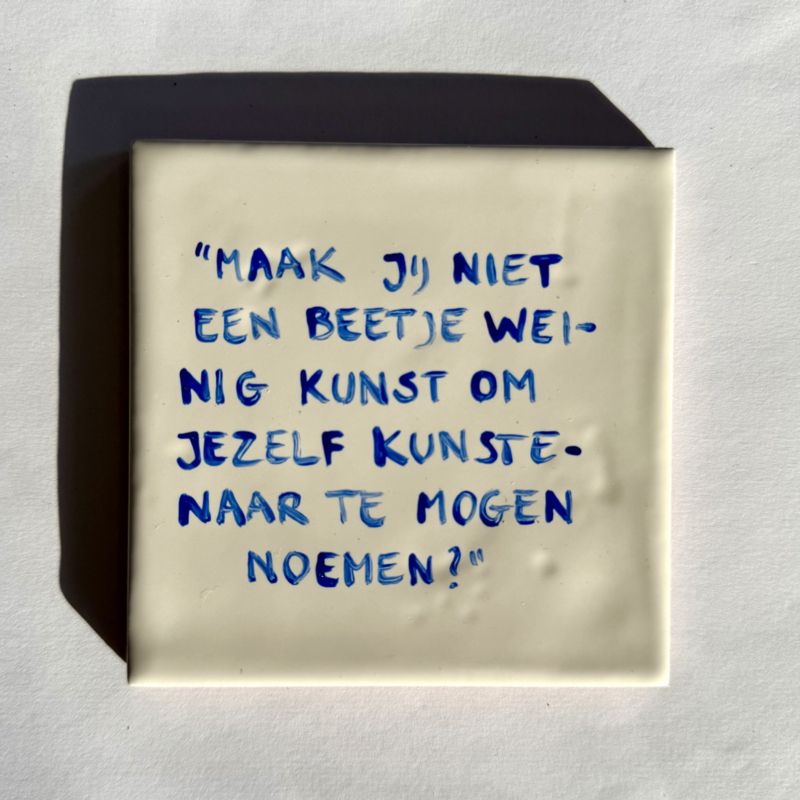 "MAAK JIJ NIET
EEN BEETJE WEI-
NIG KUNST OM
JEZELF KUNSTE-
NAAR TE MOGEN
NOEMEN?"